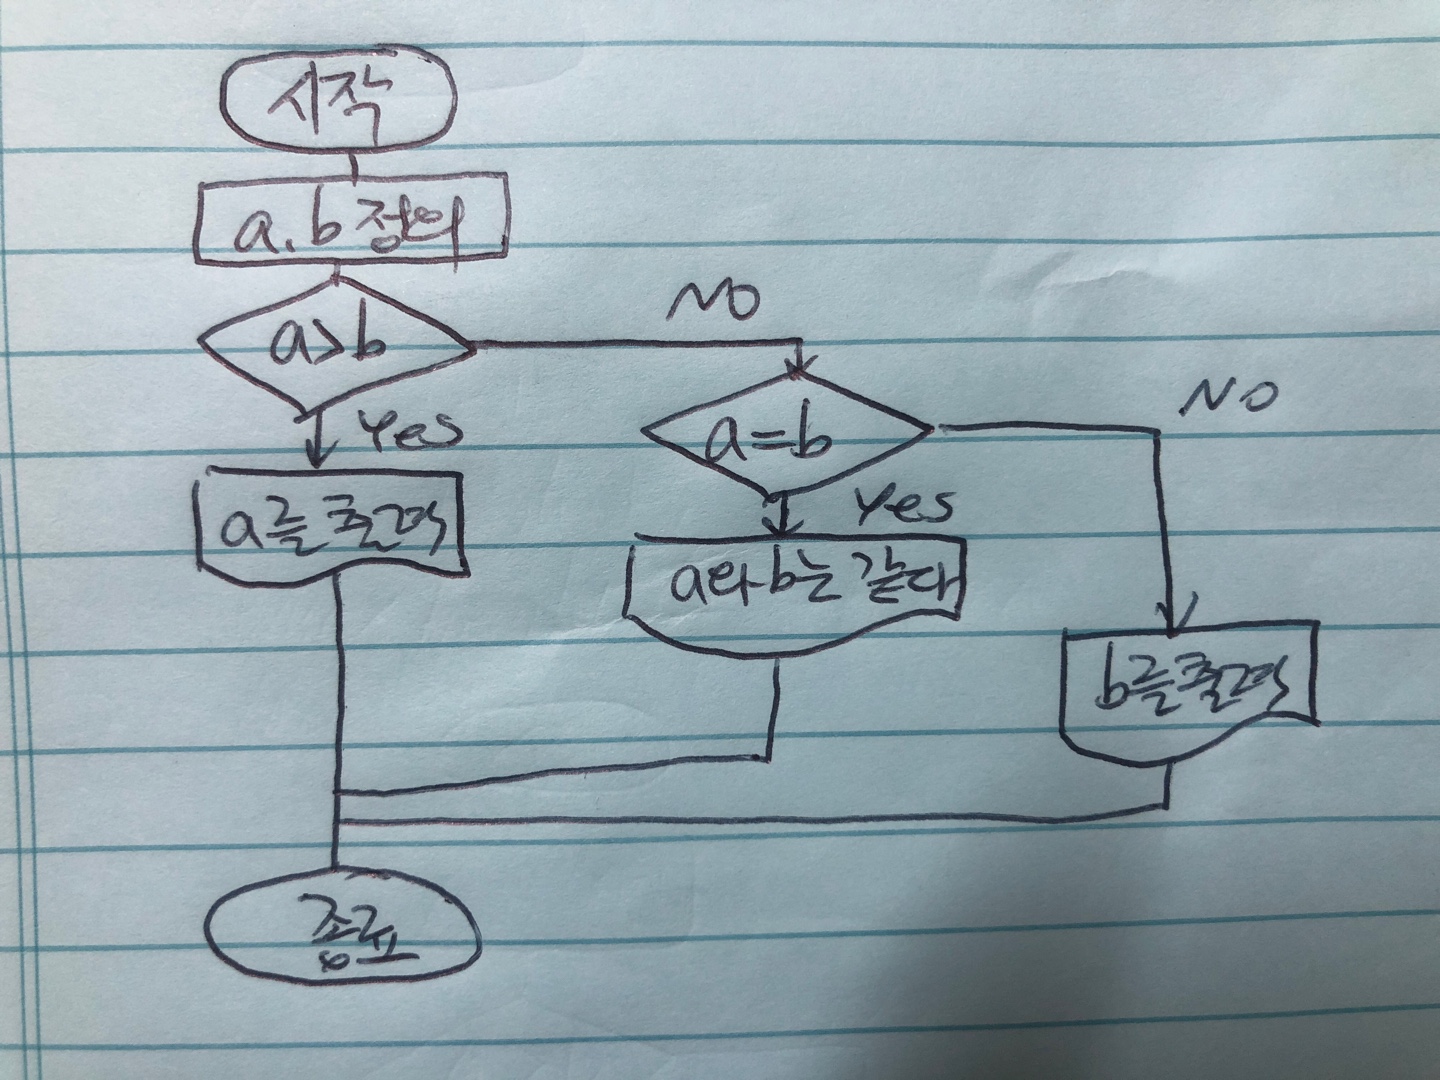 시작
a.b 정의
a>b
NO
Yes
a를 출력
a=b
NO
Yes
a와 b는 같다
b를 출력
종료